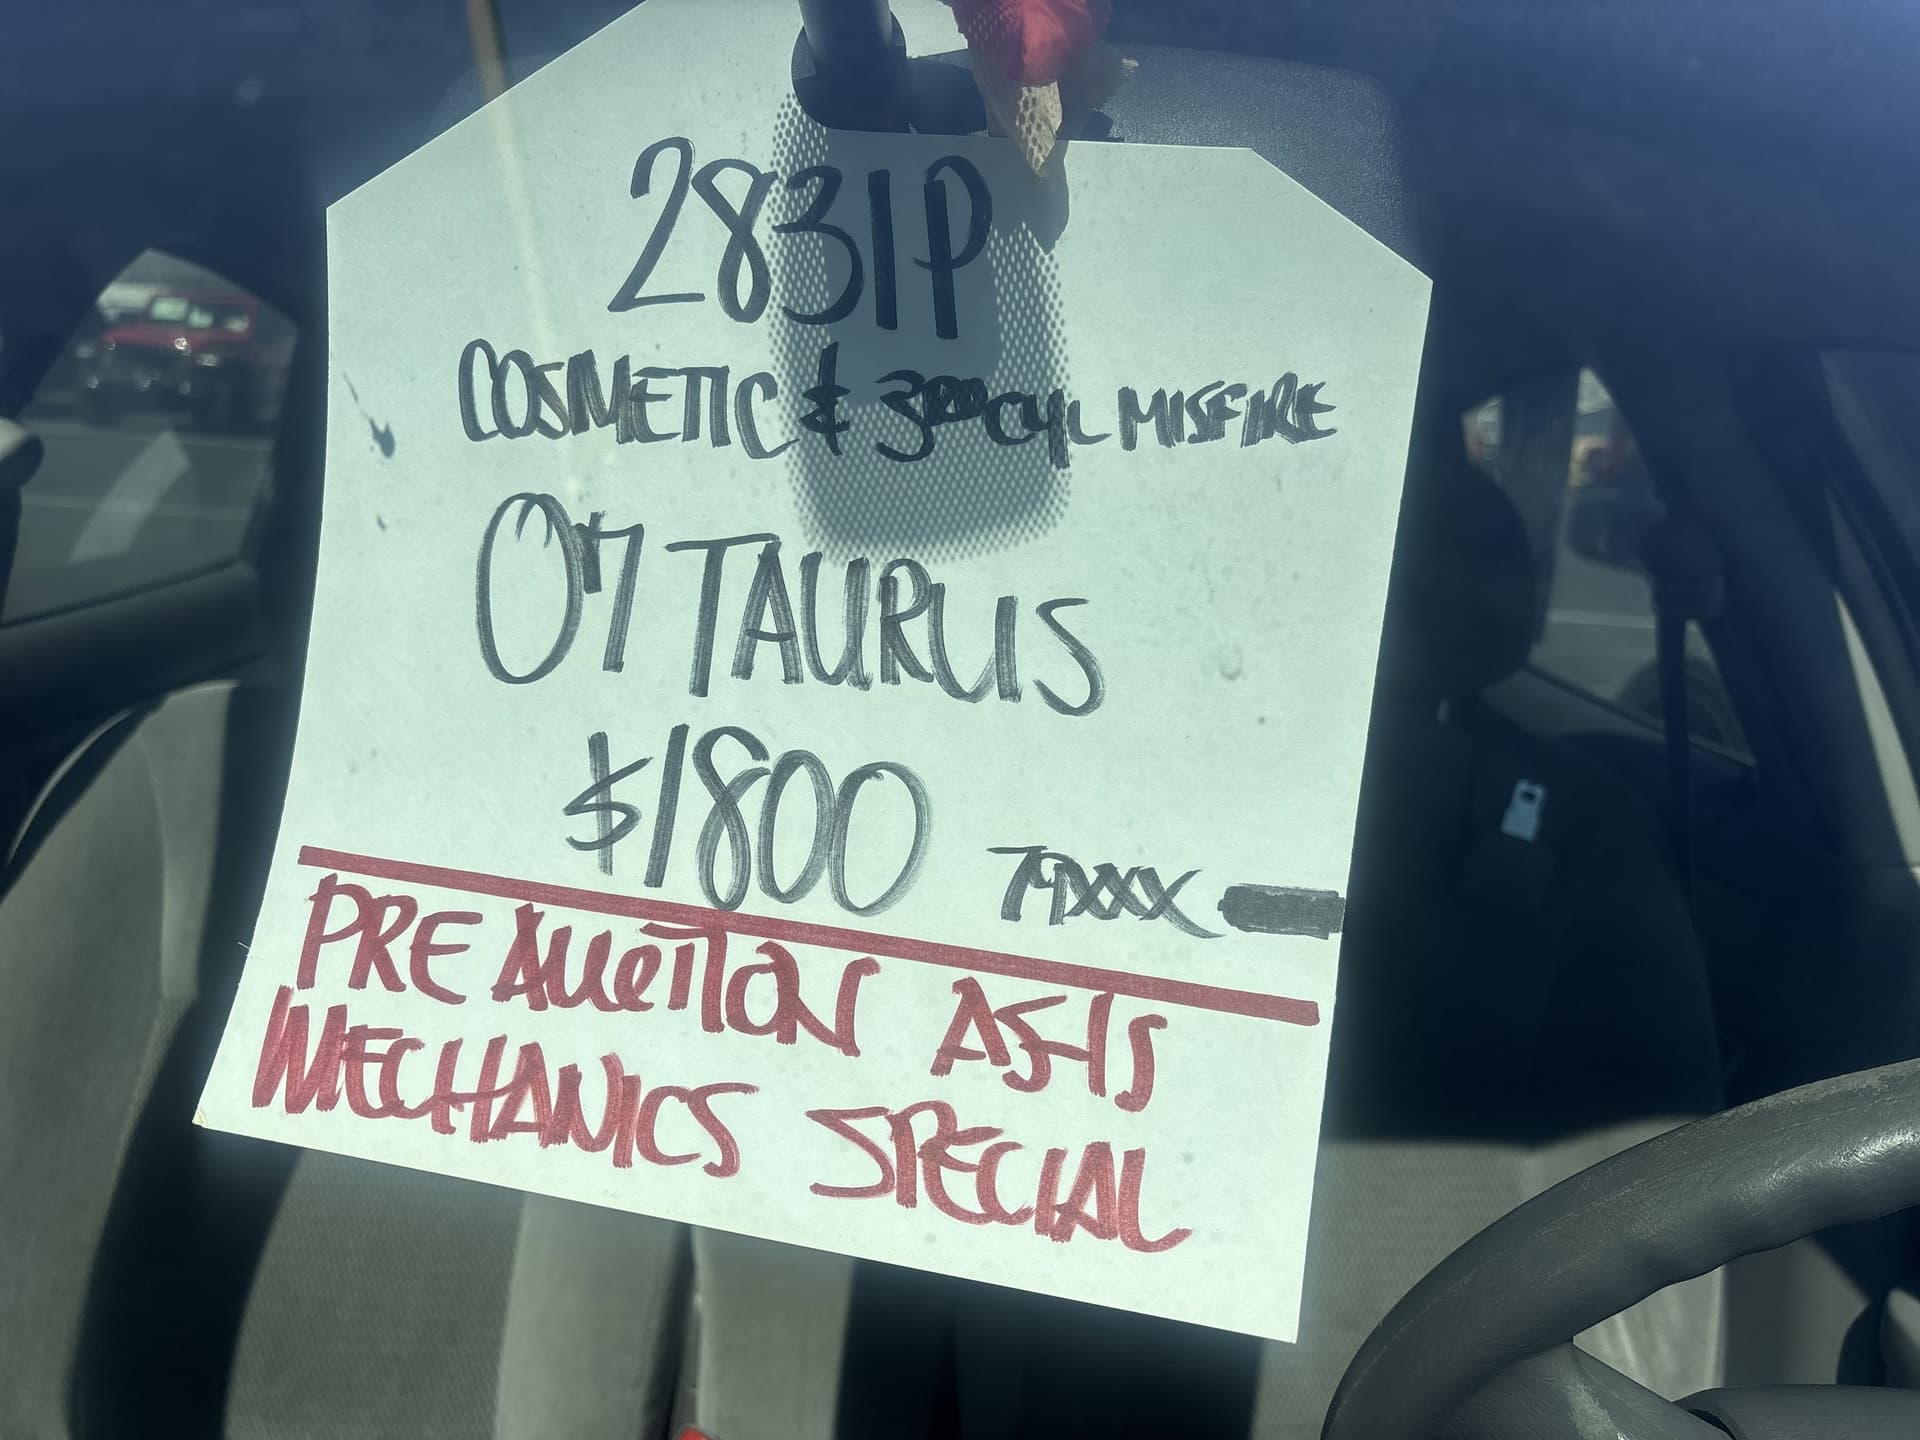 2831P
COSMETIC & 3RD CYL MISFIRE
07 TAURUS
$1800 79XXX
PRE AUCTION AS-IS
MECHANICS SPECIAL